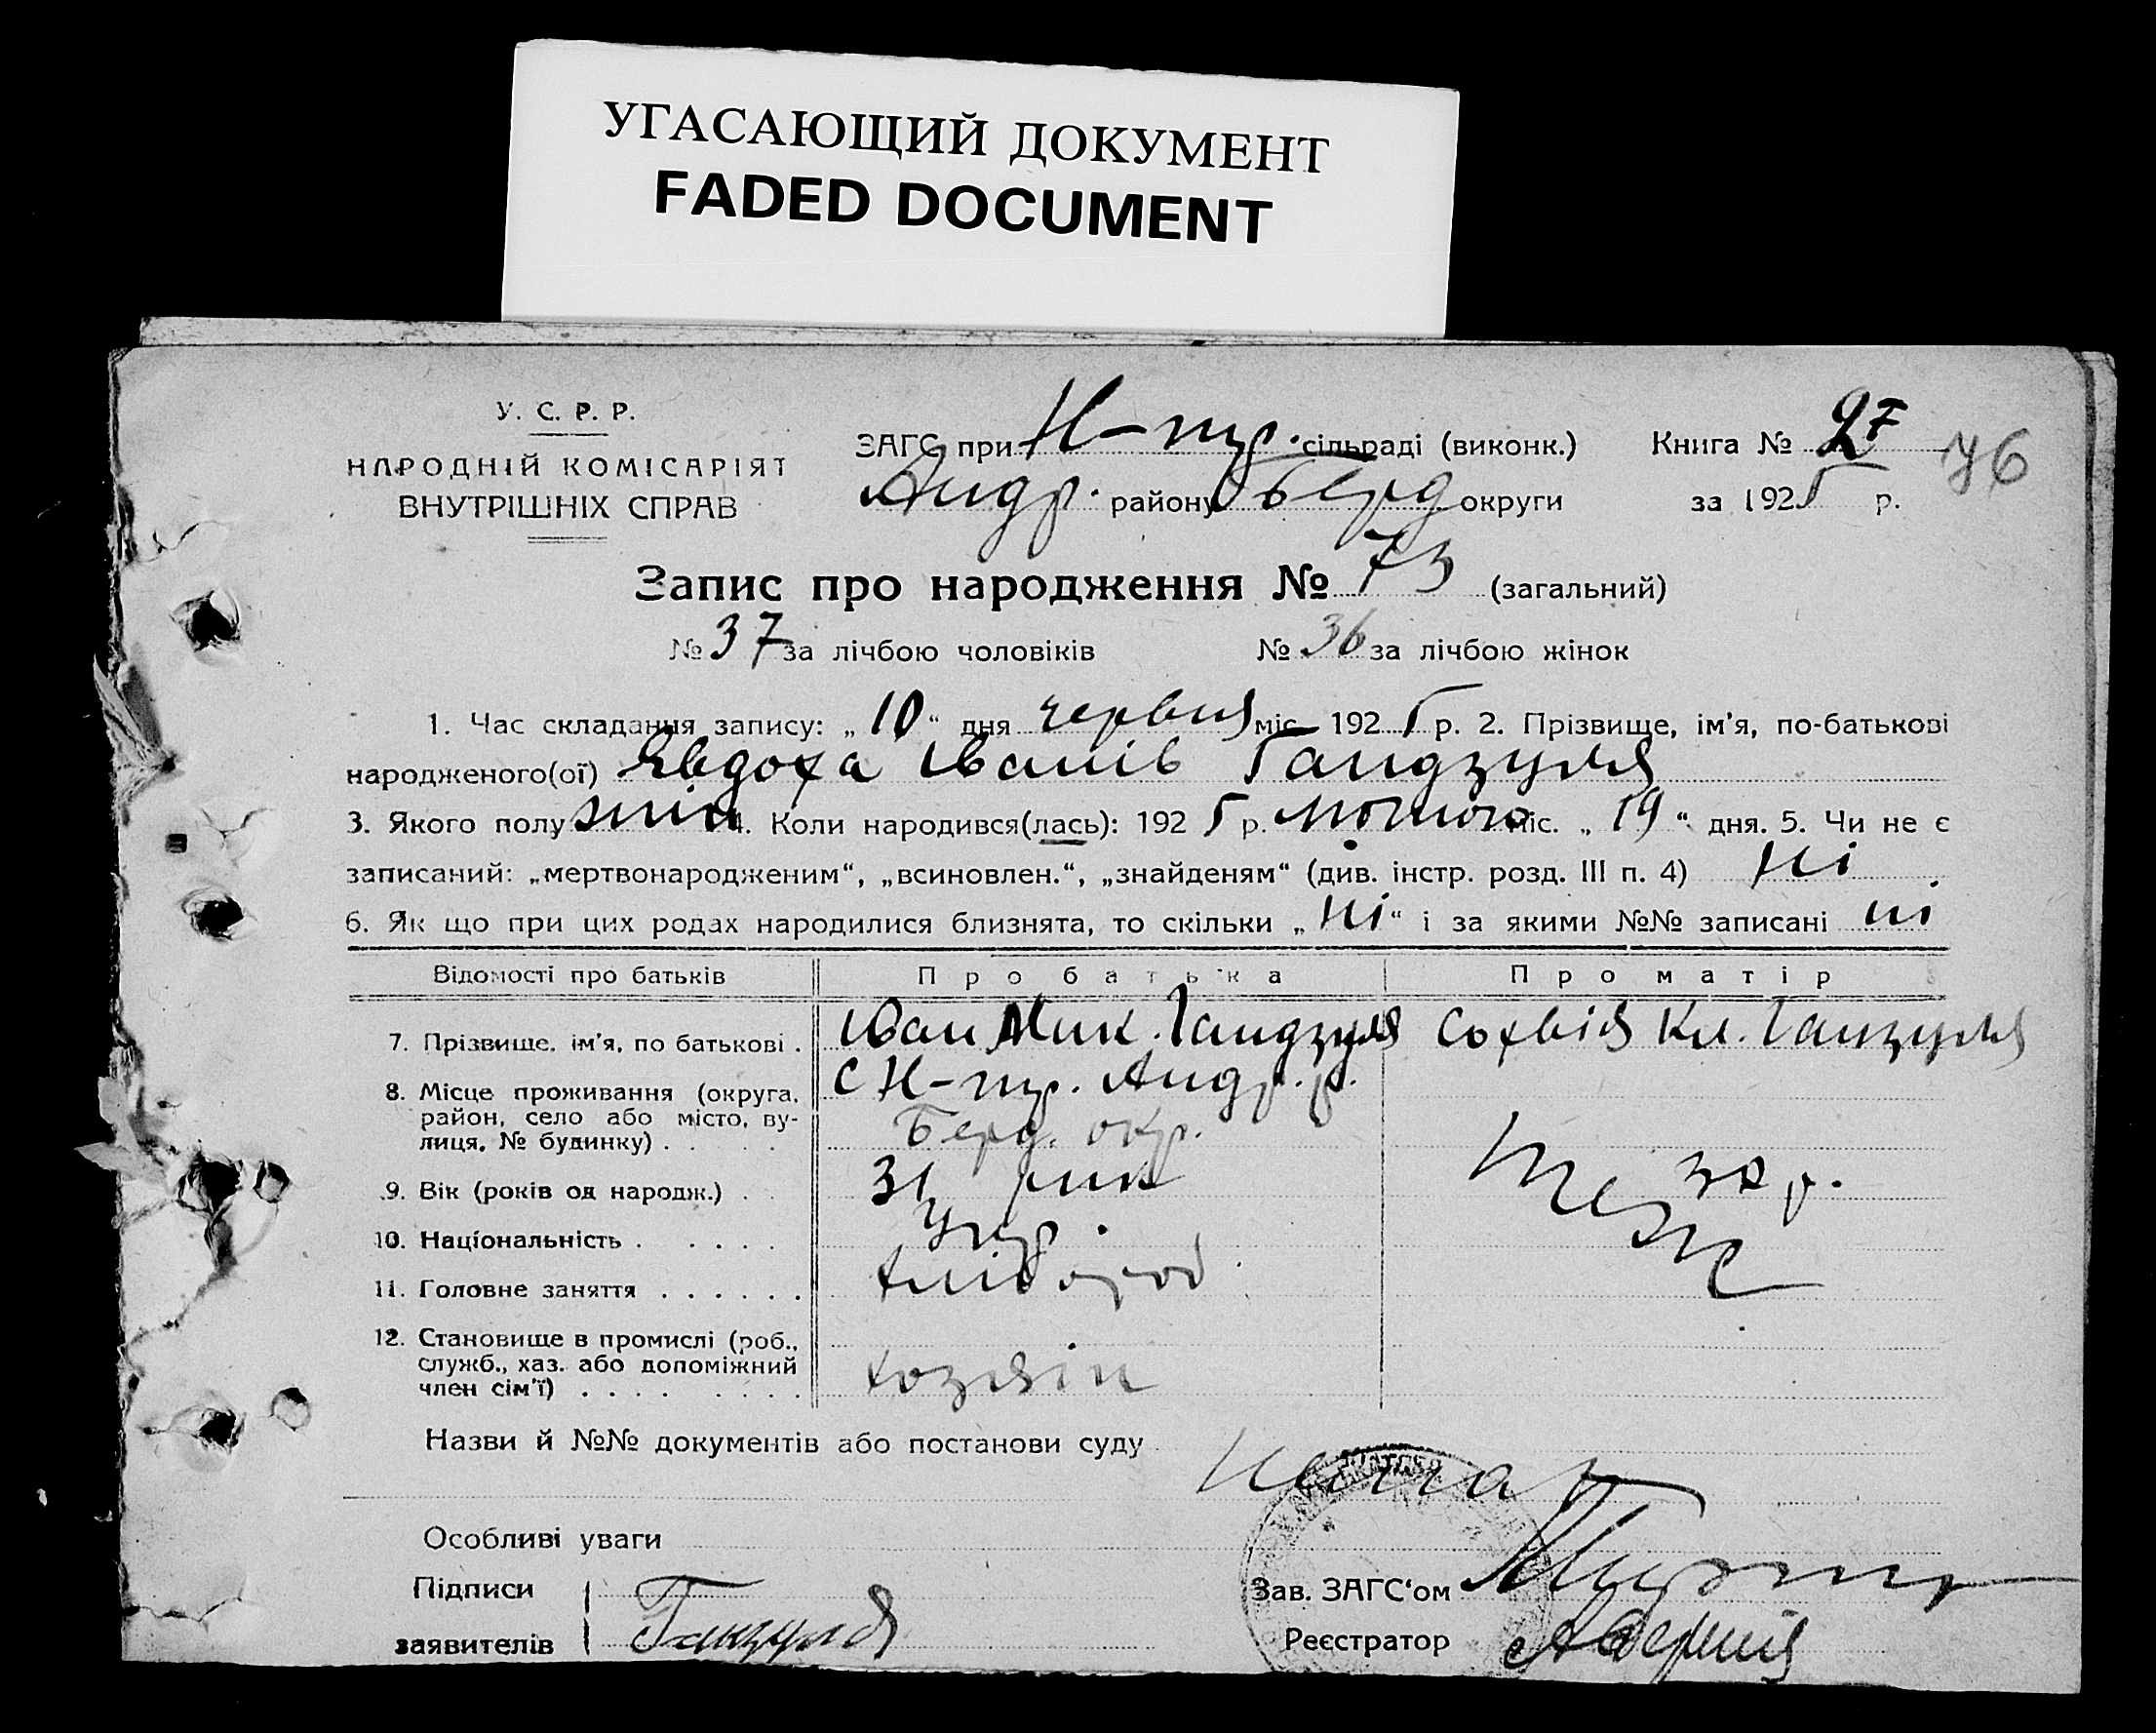 УГАСАЮЩИЙ ДОКУМЕНТ
FADED DOCUMENT
У. С. Р. Р.
НАРОДНІЙ КОМІСАРІЯТ
ВНУТРІШНІХ СПРАВ
ЗАГС при Н-пур. сільраді (виконк.)
Андр. району Берд округи
Книга № 27 76
за 1925 р.
Запис про народження № 73 (загальний)
№ 37 за лічбою чоловіків № 36 за лічбою жінок
1. Час складання запису: „10“ дня червня міс 1925 р. 2. Прізвище, ім’я, по-батькові
народженого(ої) Явдоха Іванів Гандзуля
3. Якого полу жін 4. Коли народився(лась): 1925 р. лютого міс. „19“ дня. 5. Чи не є
записаний: „мертвонародженим“, „всиновлен.“, „знайденям“ (див. інстр. розд. III п. 4) Ні
6. Як що при цих родах народилися близнята, то скільки „Ні“ і за якими №№ записані ні
Відомості про батьків Про батька Про матір
7. Прізвище, ім’я, по батькові . Іван Мик. Гандзуля Софвія Кл. Ганзуля
8. Місце проживання (округа, с Н-пур. Андр. р.
район, село або місто, ву-
лиця, № будинку) . . . . Берд. окр.
9. Вік (років од народж.) . . 31 рик 32 р.
теж
10. Національність . . . . . Укр.
11. Головне заняття . . . . . . хлібороб
12. Становище в промислі (роб.,
служб., хаз. або допоміжний
член сім’ї) . . . . . . . . хозяін
Назви й №№ документів або постанови суду
Особливі уваги
Підписи
заявителів Ганзуля
Зав. ЗАГС‘ом
Реєстратор